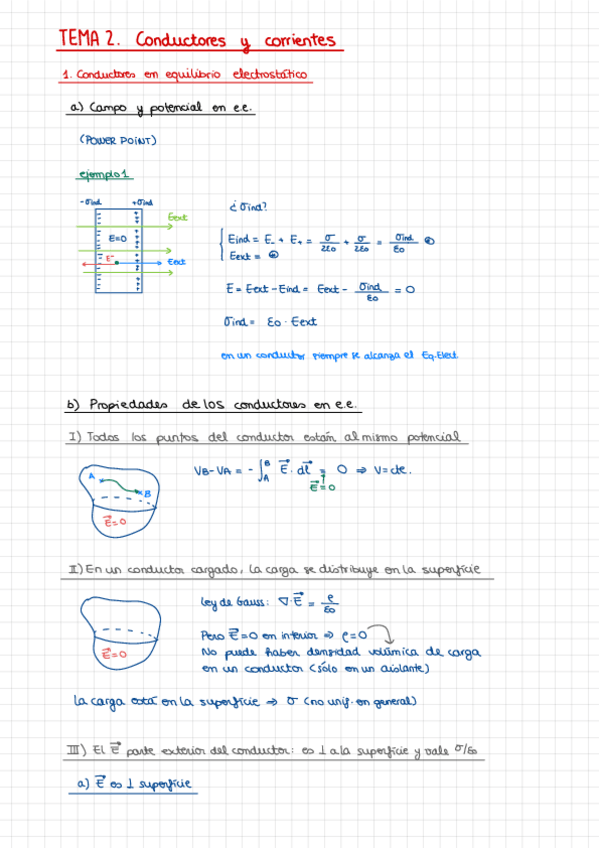 TEMA 2. Conductores y corrientes
1. Conductores en equilibrio electrostático
a) Campo y potencial en e.e.
(POWER POINT)
ejemplo 1
-σind +σind
Eext
E=0
E⁻
Eext
¿σind?
Eind = E₋ + E₊ = σ/2ε₀ + σ/2ε₀ = σind/ε₀
Eext =
E = Eext - Eind = Eext - σind/ε₀ = 0
σind = ε₀ · Eext
en un conductor siempre se alcanza el Eq.Elect.
b) Propiedades de los conductores en e.e.
I) Todos los puntos del conductor están al mismo potencial
A
B
E⃗=0
VB-VA = - ∫_A^B E⃗ · dl⃗ = 0 ⇒ V=cte.
E⃗=0
II) En un conductor cargado, la carga se distribuye en la superficie
E⃗=0
Ley de Gauss: ∇·E⃗ = ρ/ε₀
Pero E⃗=0 en interior ⇒ ρ=0
No puede haber densidad volúmica de carga
en un conductor (sólo en un aislante)
La carga está en la superficie ⇒ σ (no unif. en general)
III) El E⃗ parte exterior del conductor: es ⊥ a la superficie y vale σ/ε₀
a) E⃗ es ⊥ superficie